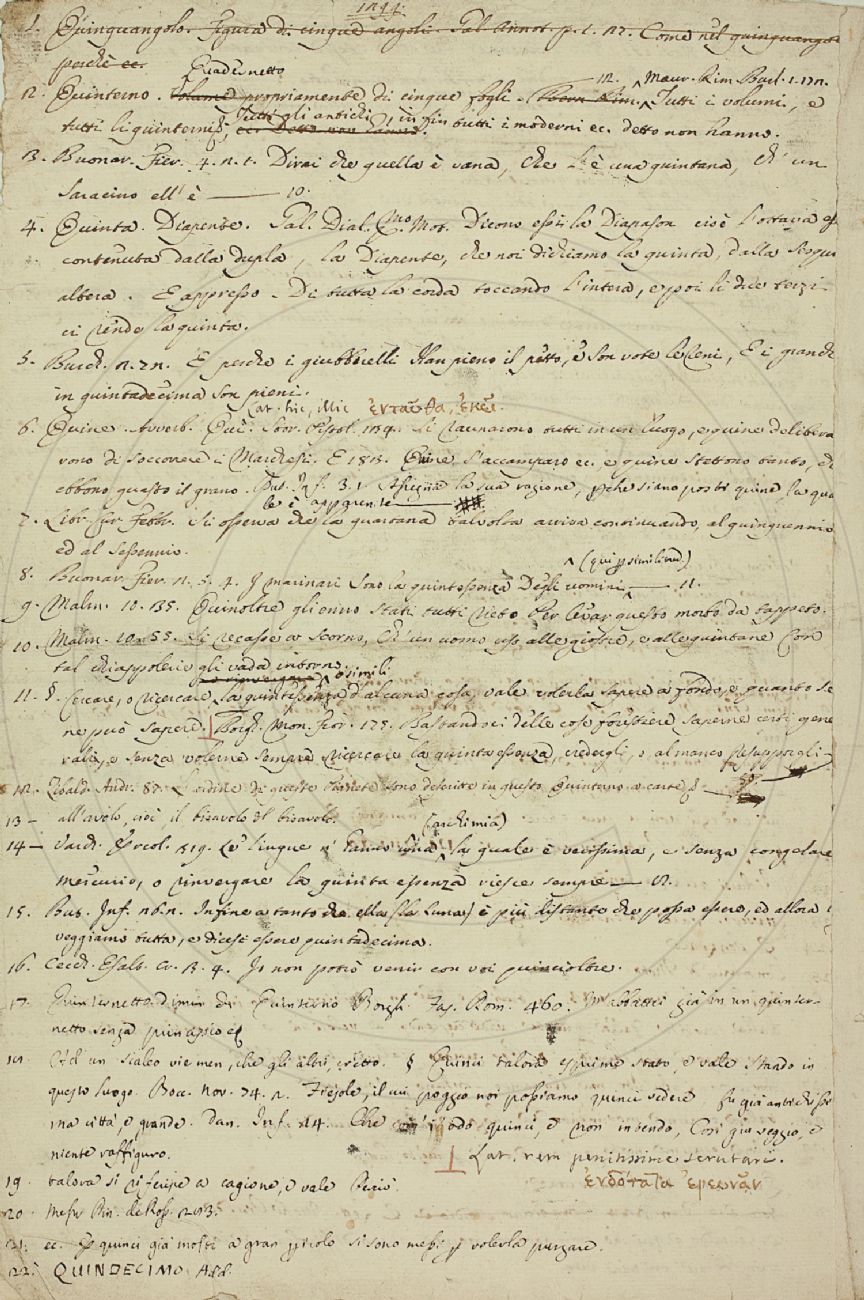 1. Quinquangolo. Figura di cinque angoli. Gal. Annot. p. 1. 27. Come nel quinquangolo
perchè ec.
Quadernetto
12. Maur. Rim. Burl. 1. 171.
2. Quinterno. Volume propriamente di cinque fogli. Tutti i volumi, e
Tutti gli antichi
tutti li quinterni infin tutti i moderni ec. detto non hanno.
3. Buonar. Fier. 4. 2. 1. Dirai che quella è vana, che l'è una quintana, ch'un
Saracino ell'è — 10.
4. Quinta. Diapente. Gal. Dial. Mot. Dicono essi la Diapason cioè l'ottava esser
contenuta dalla dupla, la Diapente, che noi dichiamo la quinta, dalla sesqui
altera. E appresso. Di tutta la corda toccando l'intera, e poi li due terzi
ci rende la quinta.
5. Burch. 2. E perche i giubberelli Han pieno il petto, e son vote le reni, E i granchi
in quintadecima son pieni.
Lat. hic, illic ἐνταῦθα, ἐκεῖ.
6. Quine. Avverb. Qui. Stor. Pistol. 134. Si raunarono tutti in un luogo, e quine delibera
rono di soccorrere i Marchesi. E 183. Quine s'accamparo ec. e quine stettono tanto, che
ebbono guasto il grano. But. Inf. 3. 1. Assegna la sua ragione, perche siano posti quine la qua
le è apparente —
7. Libr. cur. Febbr. Si osserva che la quartana talvolta arriva continuando, al quinquennio
ed al sessennio.
(qui per similitud.)
8. Buonar. Fier. 2. 3. 4. I marinari Sono la quintessenza Degli uomini — 11.
9. Malm. 10. 35. Quinoltre gli enno stati tutti Per levar questo morbo da tappeto.
10. Malm. 10. 55. Si recasse a scorno, Ch'un uomo uso alle giostre, e alle quintane Con
tal chiappoleric gli vada intorno.
o rinvergare o simili
11. §. Cercare, o ricercare la quintessenza d'alcuna cosa, vale volerla sapere a fondo, e quanto se
ne può sapere. Borgh. Mon. Fior. 175. Bastandoci delle cose forestiere saperne certi gene
rali, e senza volerne sempre ricercare la quinta essenza, credergli, o almanco presupporgli —
12. Zibald. Andr. 87. L'ordine di queste Pianete sono descritte in questo Quinterno a carte —
13 — all'avolo, cioè il bisavolo el bisavolo.
(archimia)
14 — Varch. Ercol. 319. Le lingue una la quale è verissima, e senza congelare
mercurio, o rinvergare la quinta essenza riesce sempre —
15. But. Inf. Infine a tanto che ella (la Luna) è più distante che possa essere, ed allora
veggiamo tutta, e dicesi essere quintadecima.
16. Cecch. Esalt. cr. 3. 4. Io non potrò venir con voi quincioltre.
17. Quinternetto. dimin. di Quinterno Borgh. Fas. Rom. 460. M'abbattei già in un quinter-
netto senza principio ec
18. Ch'è un sialeo vie men, che gli altri, eretto. § Quinci talora esprime stato, e vale Stando in
questo luogo. Bocc. nov. 74. 2. Fiesole, il cui poggio noi possiamo quinci vedere fu già antichissi
ma città, e grande. Dan. Inf. 24. Che com' i' odo quinci, e non intendo, Così giù veggio, e
niente raffiguro.
Lat. rem penitissime scrutari.
19. talora si riferisce a cagione, e vale Perciò
ἐνδότατα ἐρευνᾶν
20. Messer Cin. 213.
21. ec. E quinci già molti a gran pericolo si sono messi per volerla purgare.
22. QUINDECIMO Add.